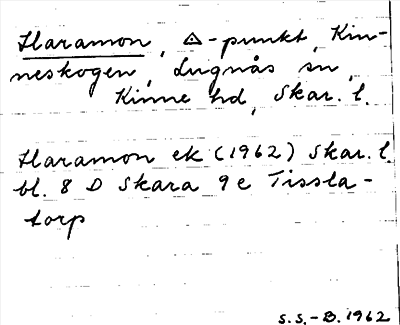 Haramon, ◬-punkt, Kin-
neskogen, Lugnås sn,
Kinne hd, Skar. l.
Haramon ek (1962) Skar. l.
bl. 8 D Skara 9 e Tissla-
torp
S.S.-B. 1962